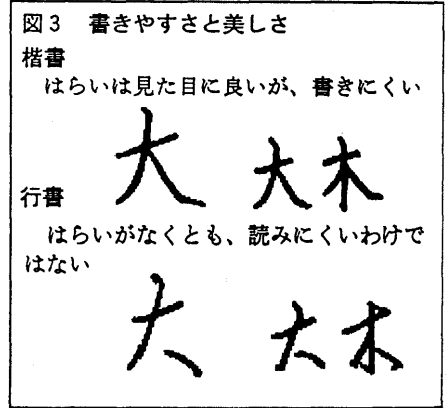 図3 書きやすさと美しさ
楷書
はらいは見た目に良いが、書きにくい
大 大 木
行書
はらいがなくとも、読みにくいわけで
はない
大 大 木